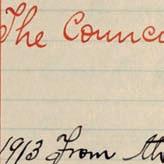 The Counc
1913 From th